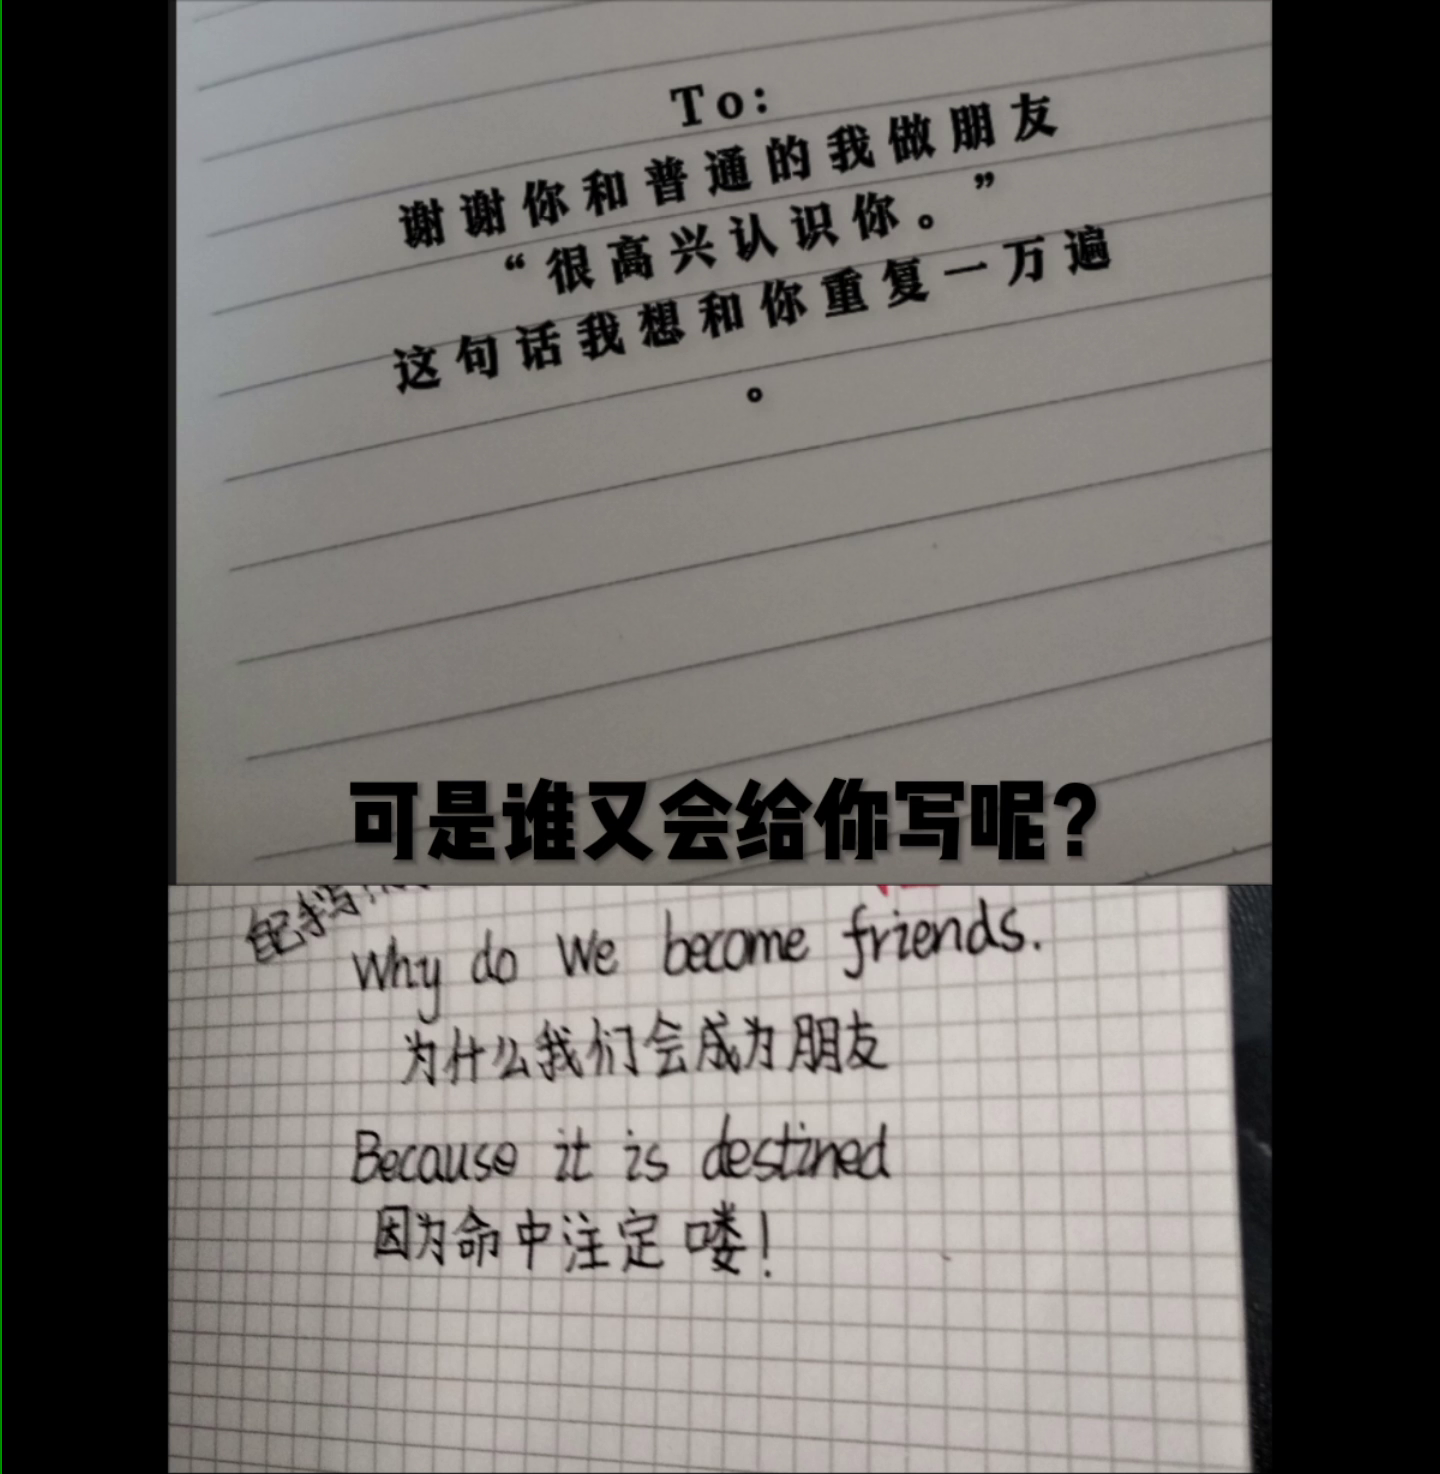 To:
谢谢你和普通的我做朋友
“很高兴认识你。”
这句话我想和你重复一万遍
。
可是谁又会给你写呢?
Why do We become friends.
为什么我们会成为朋友
Because it is destined
因为命中注定喽!